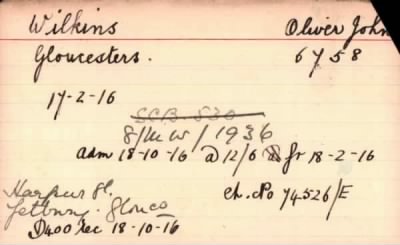 Wilkins Oliver John
Gloucesters. 6758
17-2-16
S.C.B. 530
8/MW/1936
adm 18-10-16 @ 12/6 fr 18-2-16
Harpur St. Ch. No 74526/E
Tetbury. Glouco
D400 rec 18-10-16